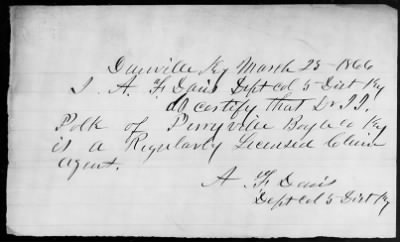 Danville Ky March 28 1866
I A. F Davis Dept Col 5 Dist Ky
do certify that Dr J J.
Polk of Perryville Boyle co Ky
is a Regularly Licensed Claim
agent.
A F Davis
Dept Col 5 Dist Ky